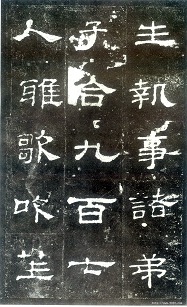 生執事諸弟
子合九百七
人雅歌吹笙